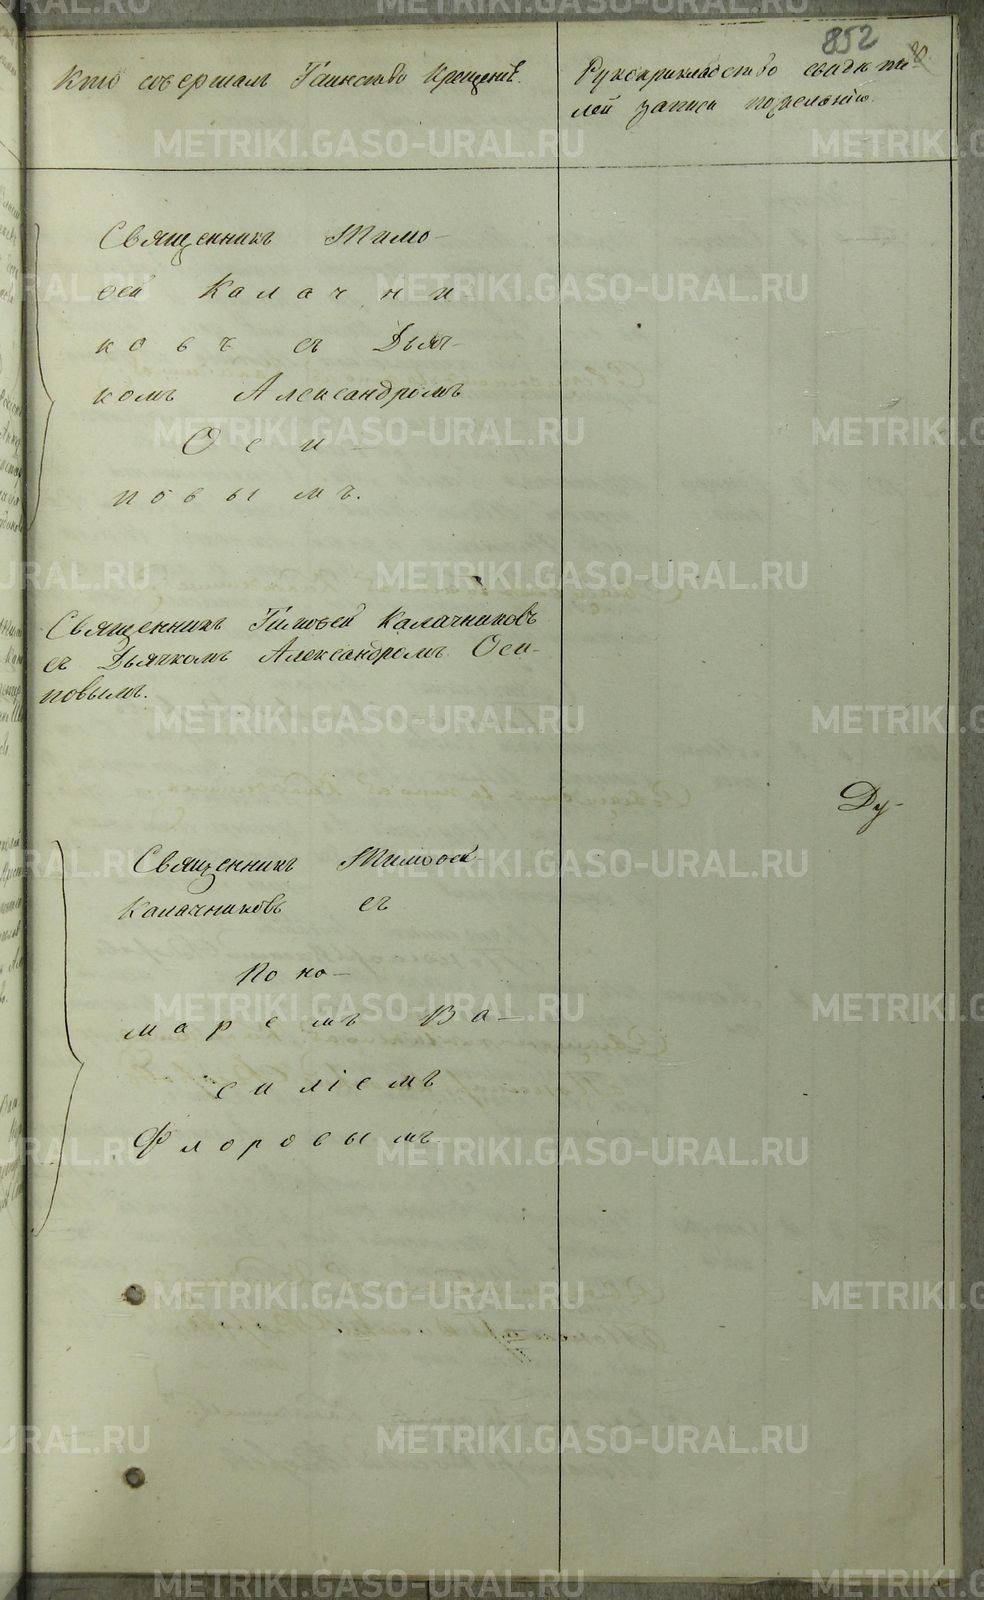 852
Кто совершалъ Таинство Крещенiе.
Рукоприкладство свидѣте
лей записи по желанiю.
Священникъ Тимо-
ѳей Калачни-
ковъ съ Дьяч-
комъ Александромъ
Оси-
повымъ.
Священникъ Тимоѳей Калачниковъ
съ Дьячкомъ Александромъ Оси-
повымъ.
Ду-
Священникъ Тимоѳей
Калачниковъ съ
Поно-
маремъ Ва-
силiемъ
Флоровымъ
METRIKI.GASO-URAL.RU